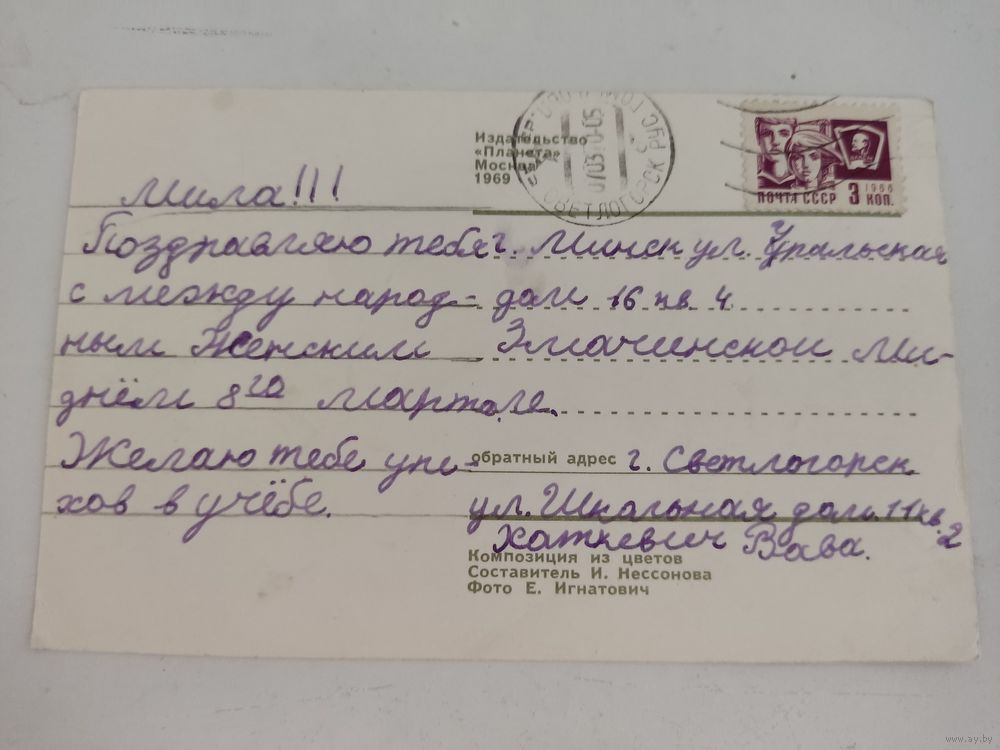 Издательство
«Планета»
Москва
1969
СВЕТЛОГОРСК
ПОЧТА СССР 3 1966 КОП.
Мила!!!
Поздравляю тебя
с между народ-
ным Женским
днём 8го марта.
Желаю тебе успе-
хов в учёбе.
г. Минск ул. Уральская
дом 16 кв 4
Змачинской Ми-
ле.
обратный адрес г. Светлогорск
ул. Школьная дом. 11 кв. 2
Хаткевич Вова.
Композиция из цветов
Составитель И. Нессонова
Фото Е. Игнатович
www.ay.by